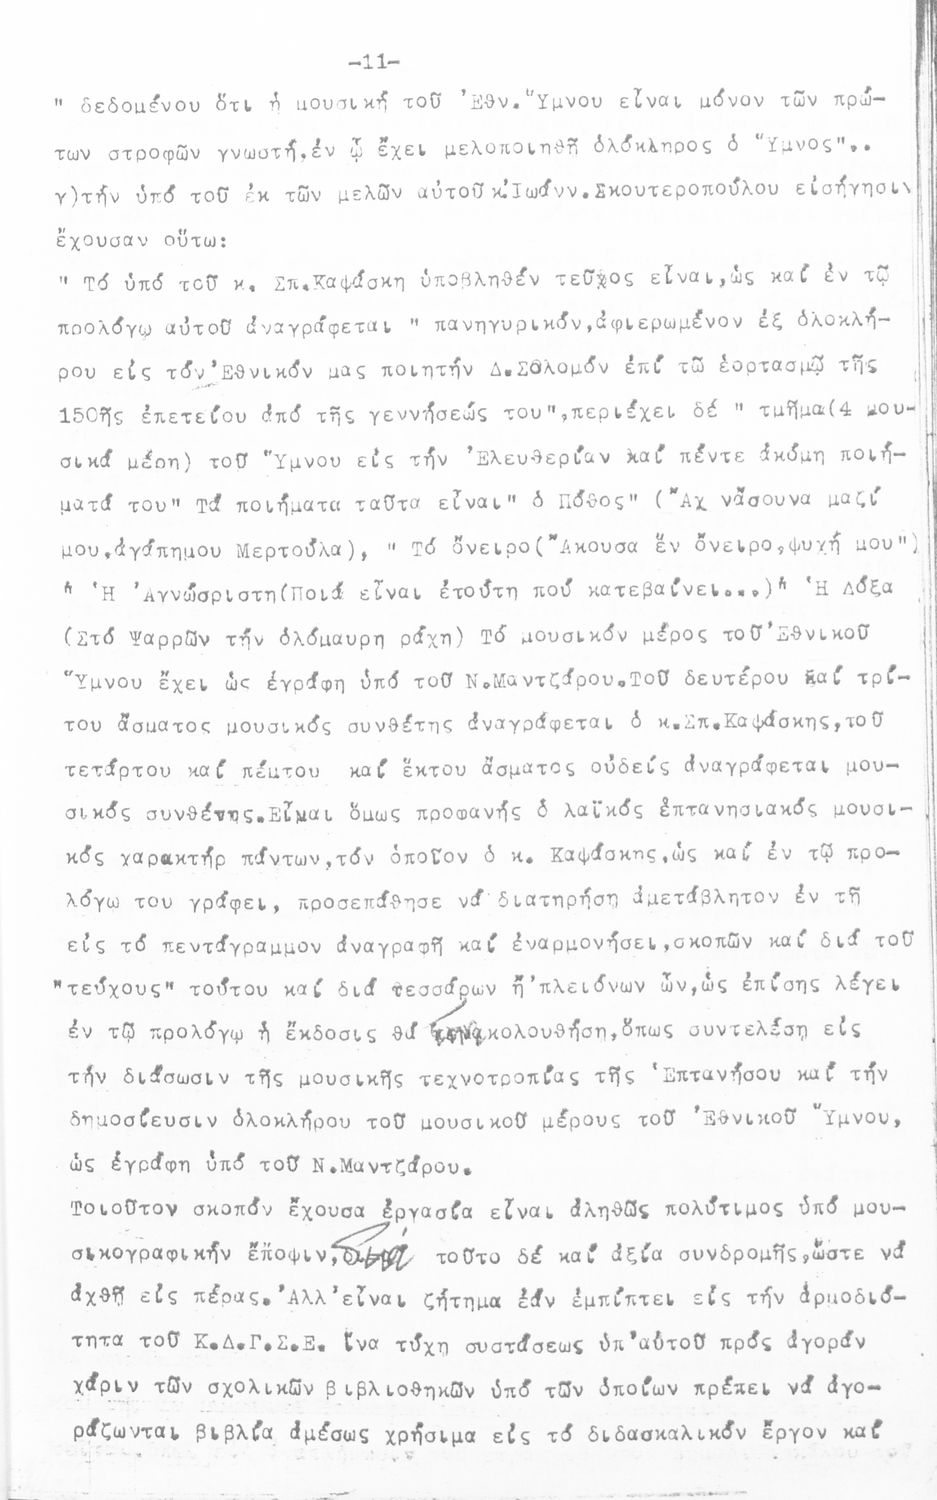 -11-
" δεδομένου ὅτι ἡ μουσική τοῦ Ἐθν.Ὕμνου εἶναι μόνον τῶν πρώ-
των στροφῶν γνωστή,ἐν ᾧ ἔχει μελοποιηθῆ ὁλόκληρος ὁ Ὕμνος"..
γ)τήν ὑπό τοῦ ἐκ τῶν μελῶν αὐτοῦ κ.Ἰωάνν.Σκουτεροπούλου εἰσήγησιν
ἔχουσαν οὕτω:
" Τό ὑπό τοῦ κ. Σπ.Καψάσκη ὑποβληθέν τεῦχος εἶναι,ὡς καί ἐν τῷ
προλόγῳ αὐτοῦ ἀναγράφεται " πανηγυρικόν,ἀφιερωμένον ἐξ ὁλοκλή-
ρου εἰς τόν Ἐθνικόν μας ποιητήν Δ.Σολομόν ἐπί τῶ ἑορτασμῷ τῆς
150ῆς ἐπετείου ἀπό τῆς γεννήσεώς του",περιέχει δέ " τμῆμα(4 μου-
σικά μέρη) τοῦ Ὕμνου εἰς τήν Ἐλευθερίαν καί πέντε ἀκόμη ποιή-
ματά του" Τά ποιήματα ταῦτα εἶναι" ὁ Πόθος" (Ἄχ νἄσουνα μαζί
μου,ἀγάπημου Μερτούλα), " Τό ὄνειρο(Ἄκουσα ἕν ὄνειρο,ψυχή μου")
" Ἡ Ἀγνώσριστη(Ποιά εἶναι ἐτούτη πού κατεβαίνει...)" Ἡ Δόξα
(Στό Ψαρρῶν τήν ὁλόμαυρη ράχη) Τό μουσικόν μέρος τοῦ Ἐθνικοῦ
Ὕμνου ἔχει ὡς ἐγράφη ὑπό τοῦ Ν.Μαντζάρου.Τοῦ δευτέρου καί τρί-
του ἄσματος μουσικός συνθέτης ἀναγράφεται ὁ κ.Σπ.Καψάσκης,τοῦ
τετάρτου καί πέμπτου καί ἕκτου ἄσματος οὐδείς ἀναγράφεται μου-
σικός συνθέτης.Εἶναι ὅμως προφανής ὁ λαϊκός ἑπτανησιακός μουσι-
κός χαρακτήρ πάντων,τόν ὁποῖον ὁ κ. Καψάσκης,ὡς καί ἐν τῷ προ-
λόγω του γράφει, προσεπάθησε νά διατηρήση ἀμετάβλητον ἐν τῆ
εἰς τό πεντάγραμμον ἀναγραφῆ καί ἐναρμονήσει,σκοπῶν καί διά τοῦ
"τεύχους" τούτου καί διά τεσσάρων ἤ πλειόνων ὧν,ὡς ἐπίσης λέγει
ἐν τῷ προλόγῳ ἡ ἔκδοσις θά κολουθήση,ὅπως συντελέση εἰς
τήν διάσωσιν τῆς μουσικῆς τεχνοτροπίας τῆς Ἑπτανήσου καί τήν
δημοσίευσιν ὁλοκλήρου τοῦ μουσικοῦ μέρους τοῦ Ἐθνικοῦ Ὕμνου,
ὡς ἐγράφη ὑπό τοῦ Ν.Μαντζάρου.
Τοιοῦτον σκοπόν ἔχουσα ἐργασία εἶναι ἀληθῶς πολύτιμος ὑπό μου-
σικογραφικήν ἔποψιν, τοῦτο δέ καί ἀξία συνδρομῆς,ὥστε νά
ἀχθῆ εἰς πέρας.Ἀλλ'εἶναι ζήτημα ἐάν ἐμπίπτει εἰς τήν ἁρμοδιό-
τητα τοῦ Κ.Δ.Γ.Σ.Ε. ἵνα τύχη συστάσεως ὑπ'αὐτοῦ πρός ἀγοράν
χάριν τῶν σχολικῶν βιβλιοθηκῶν ὑπό τῶν ὁποίων πρέπει νά ἀγο-
ράζωνται βιβλία ἀμέσως χρήσιμα εἰς τό διδασκαλικόν ἔργον καί